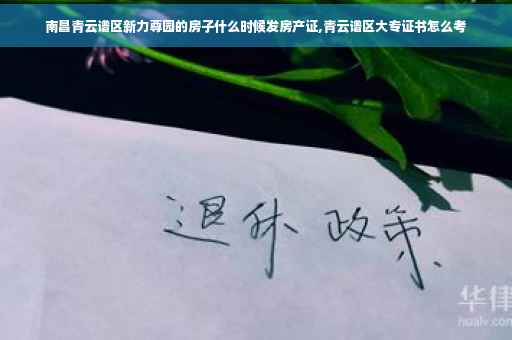 南昌青云谱区新力尊园的房子什么时候发房产证,青云谱区大专证书怎么考
退休 政策
华律
hualv.com